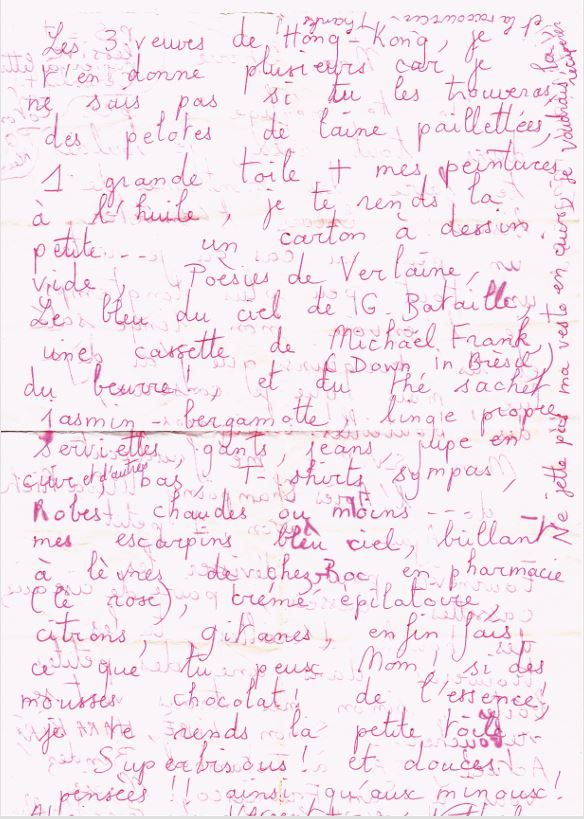 et la raccourcir. Thanks!
Les 3 veuves de Hong-Kong, je
t'en donne plusieurs car je
ne sais pas si tu les trouveras,
des pelotes de laine pailletées,
1 grande toile + mes peintures
à l'huile, je te rends la
petite --- un carton à dessin
vide, Poèsies de Verlaine,
Le bleu du ciel de G. Bataille,
une cassette de Michaël Frank
(Down in Brèsil)
du beurre!, et du thé sachet
jasmin - bergamotte, linge propre,
serviettes, gants, jeans, jupe en
cuir et d'autres, bas, T-shirts sympas,
Robes chaudes ou moins ----
mes escarpins bleu ciel, brillant
à lèvres de chez Roc en pharmacie
(le rose), crème épilatoire,
citrons, gitanes, enfin fais
ce que tu peux Mom! si des
mousses chocolat! de l'essence!,
je te rends la petite toile --
Superbisous! et douces
pensées!! ainsi qu'aux minoux!
Ne jette pas ma veste en cuir, je voudrais la